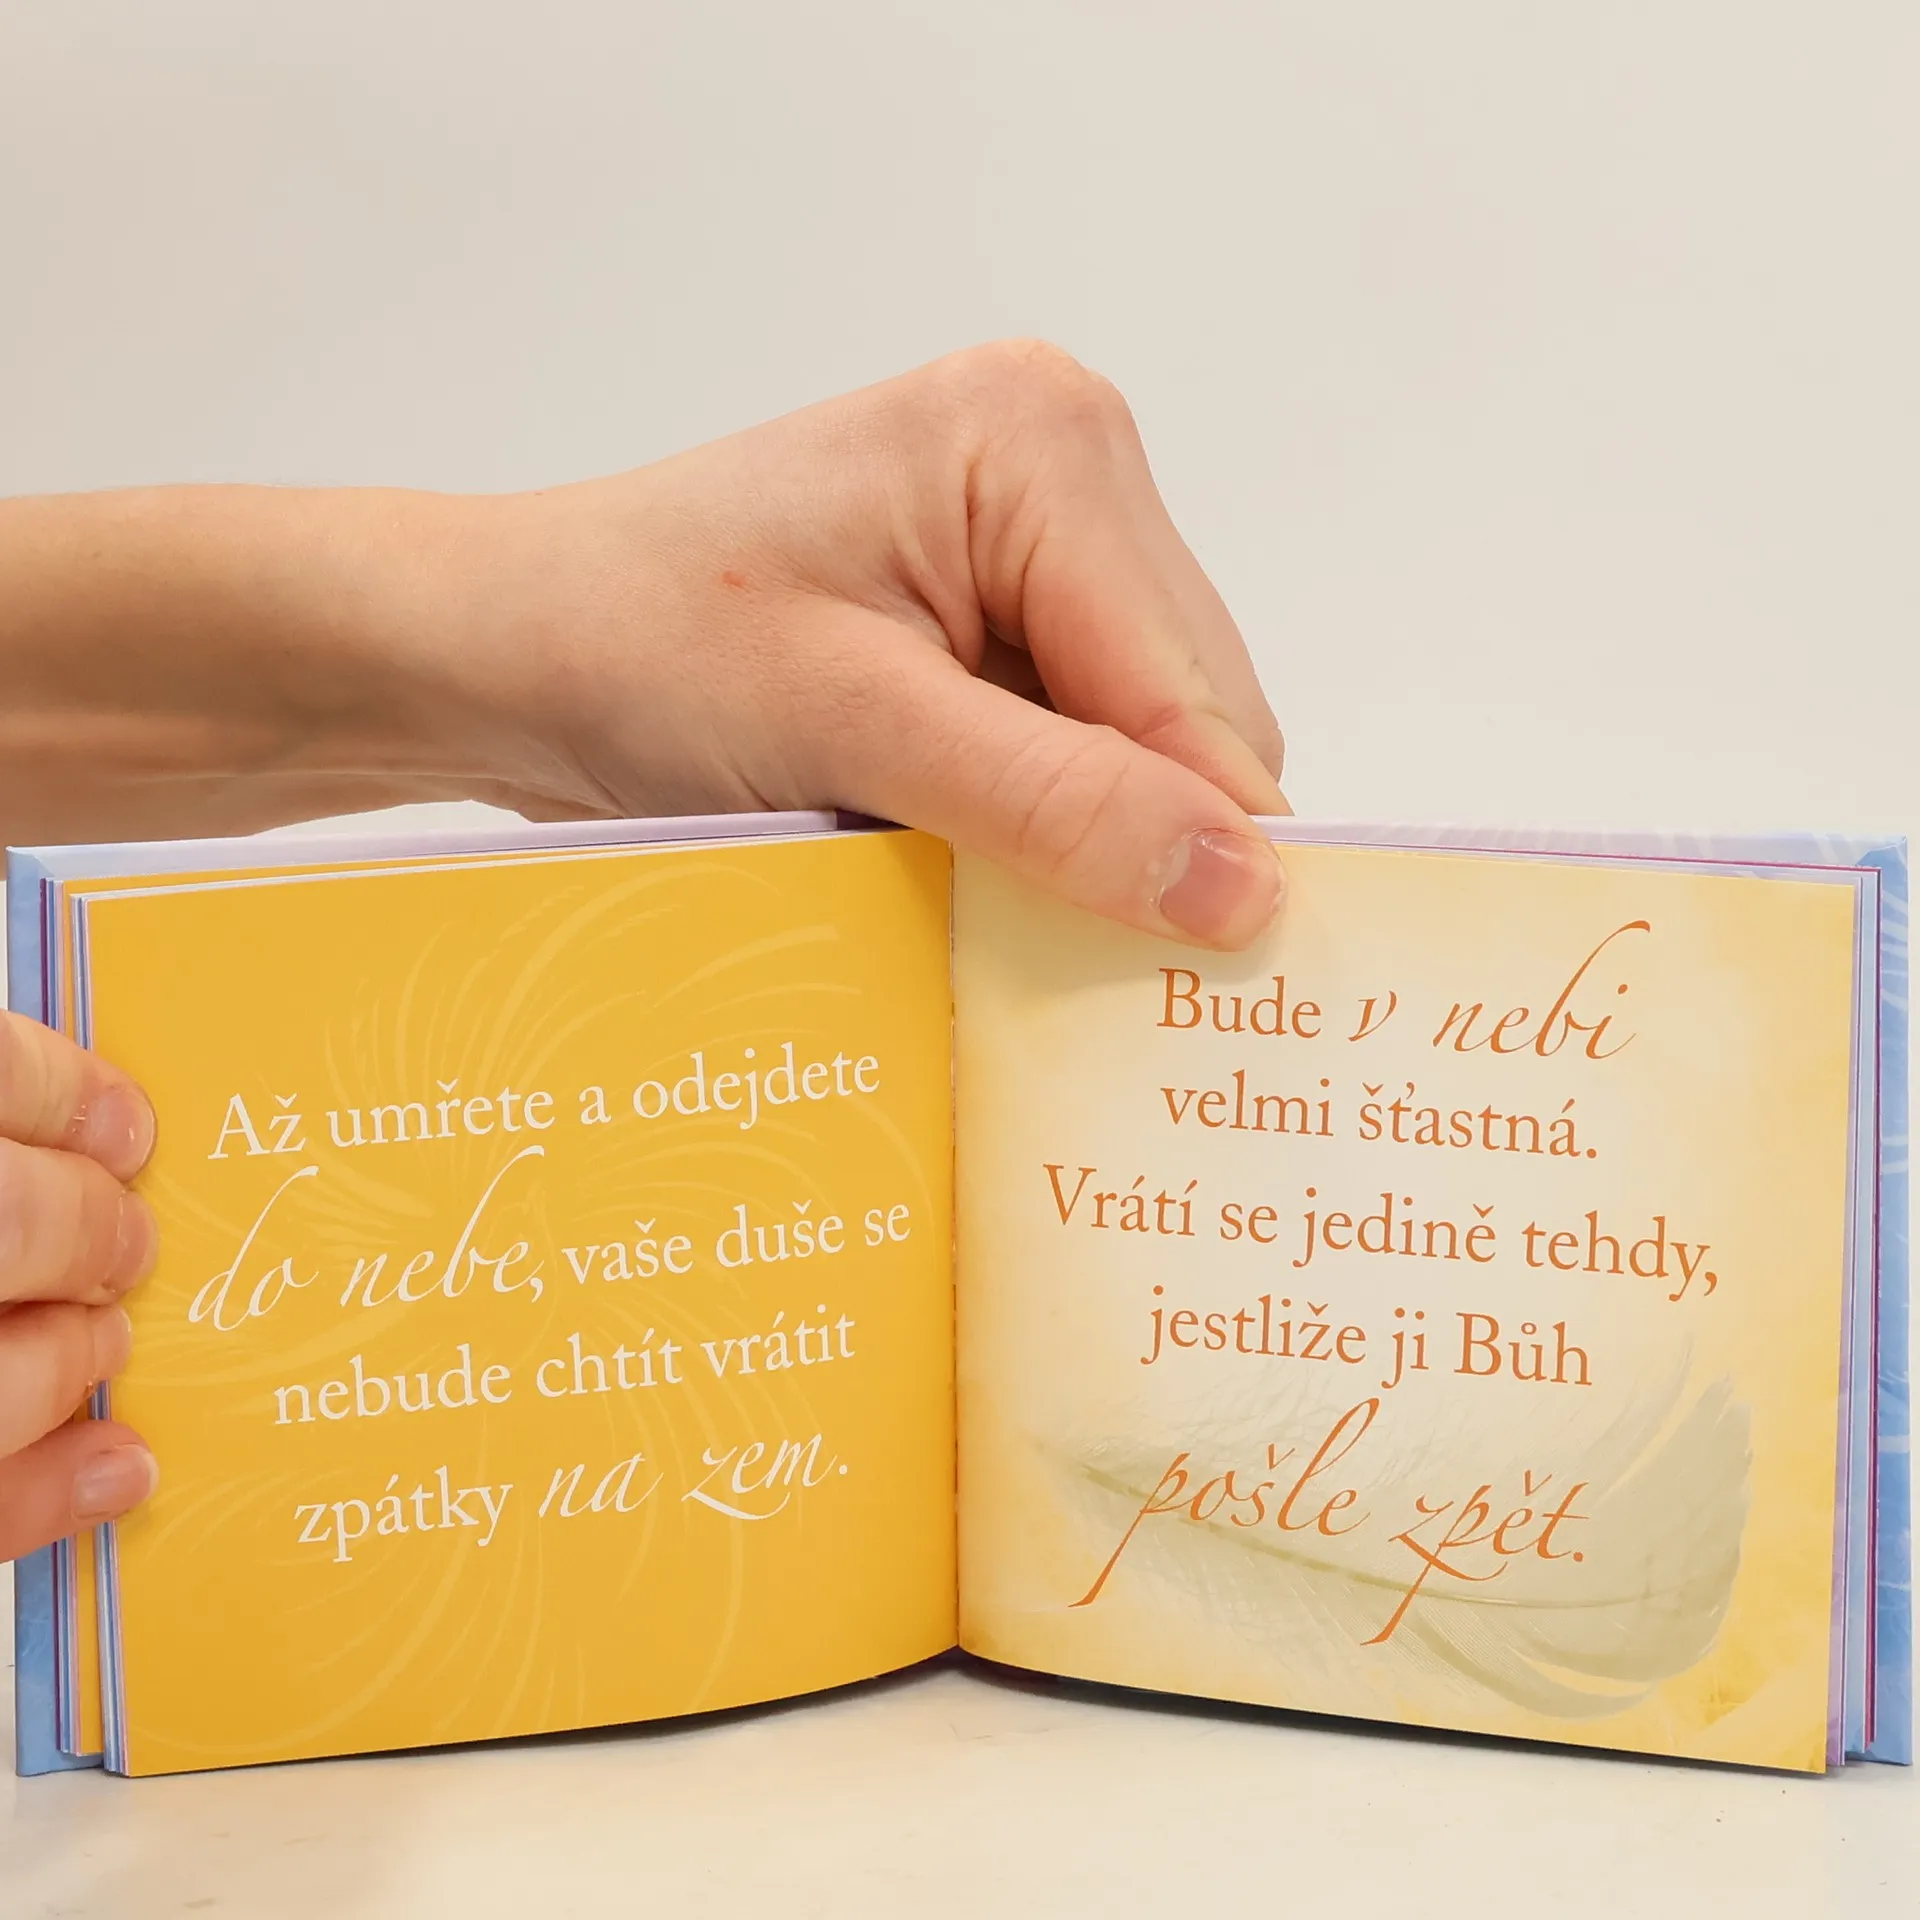 Až umřete a odejdete
do nebe, vaše duše se
nebude chtít vrátit
zpátky na zem.
Bude v nebi
velmi šťastná.
Vrátí se jedině tehdy,
jestliže ji Bůh
pošle zpět.